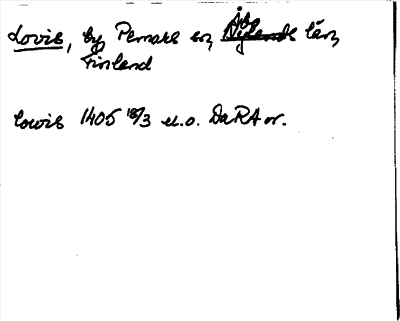 Lovis, by Pernars sn, Åbo Nylands län,
Finland
Lowis 1405 18/3 u.o. DaRA or.